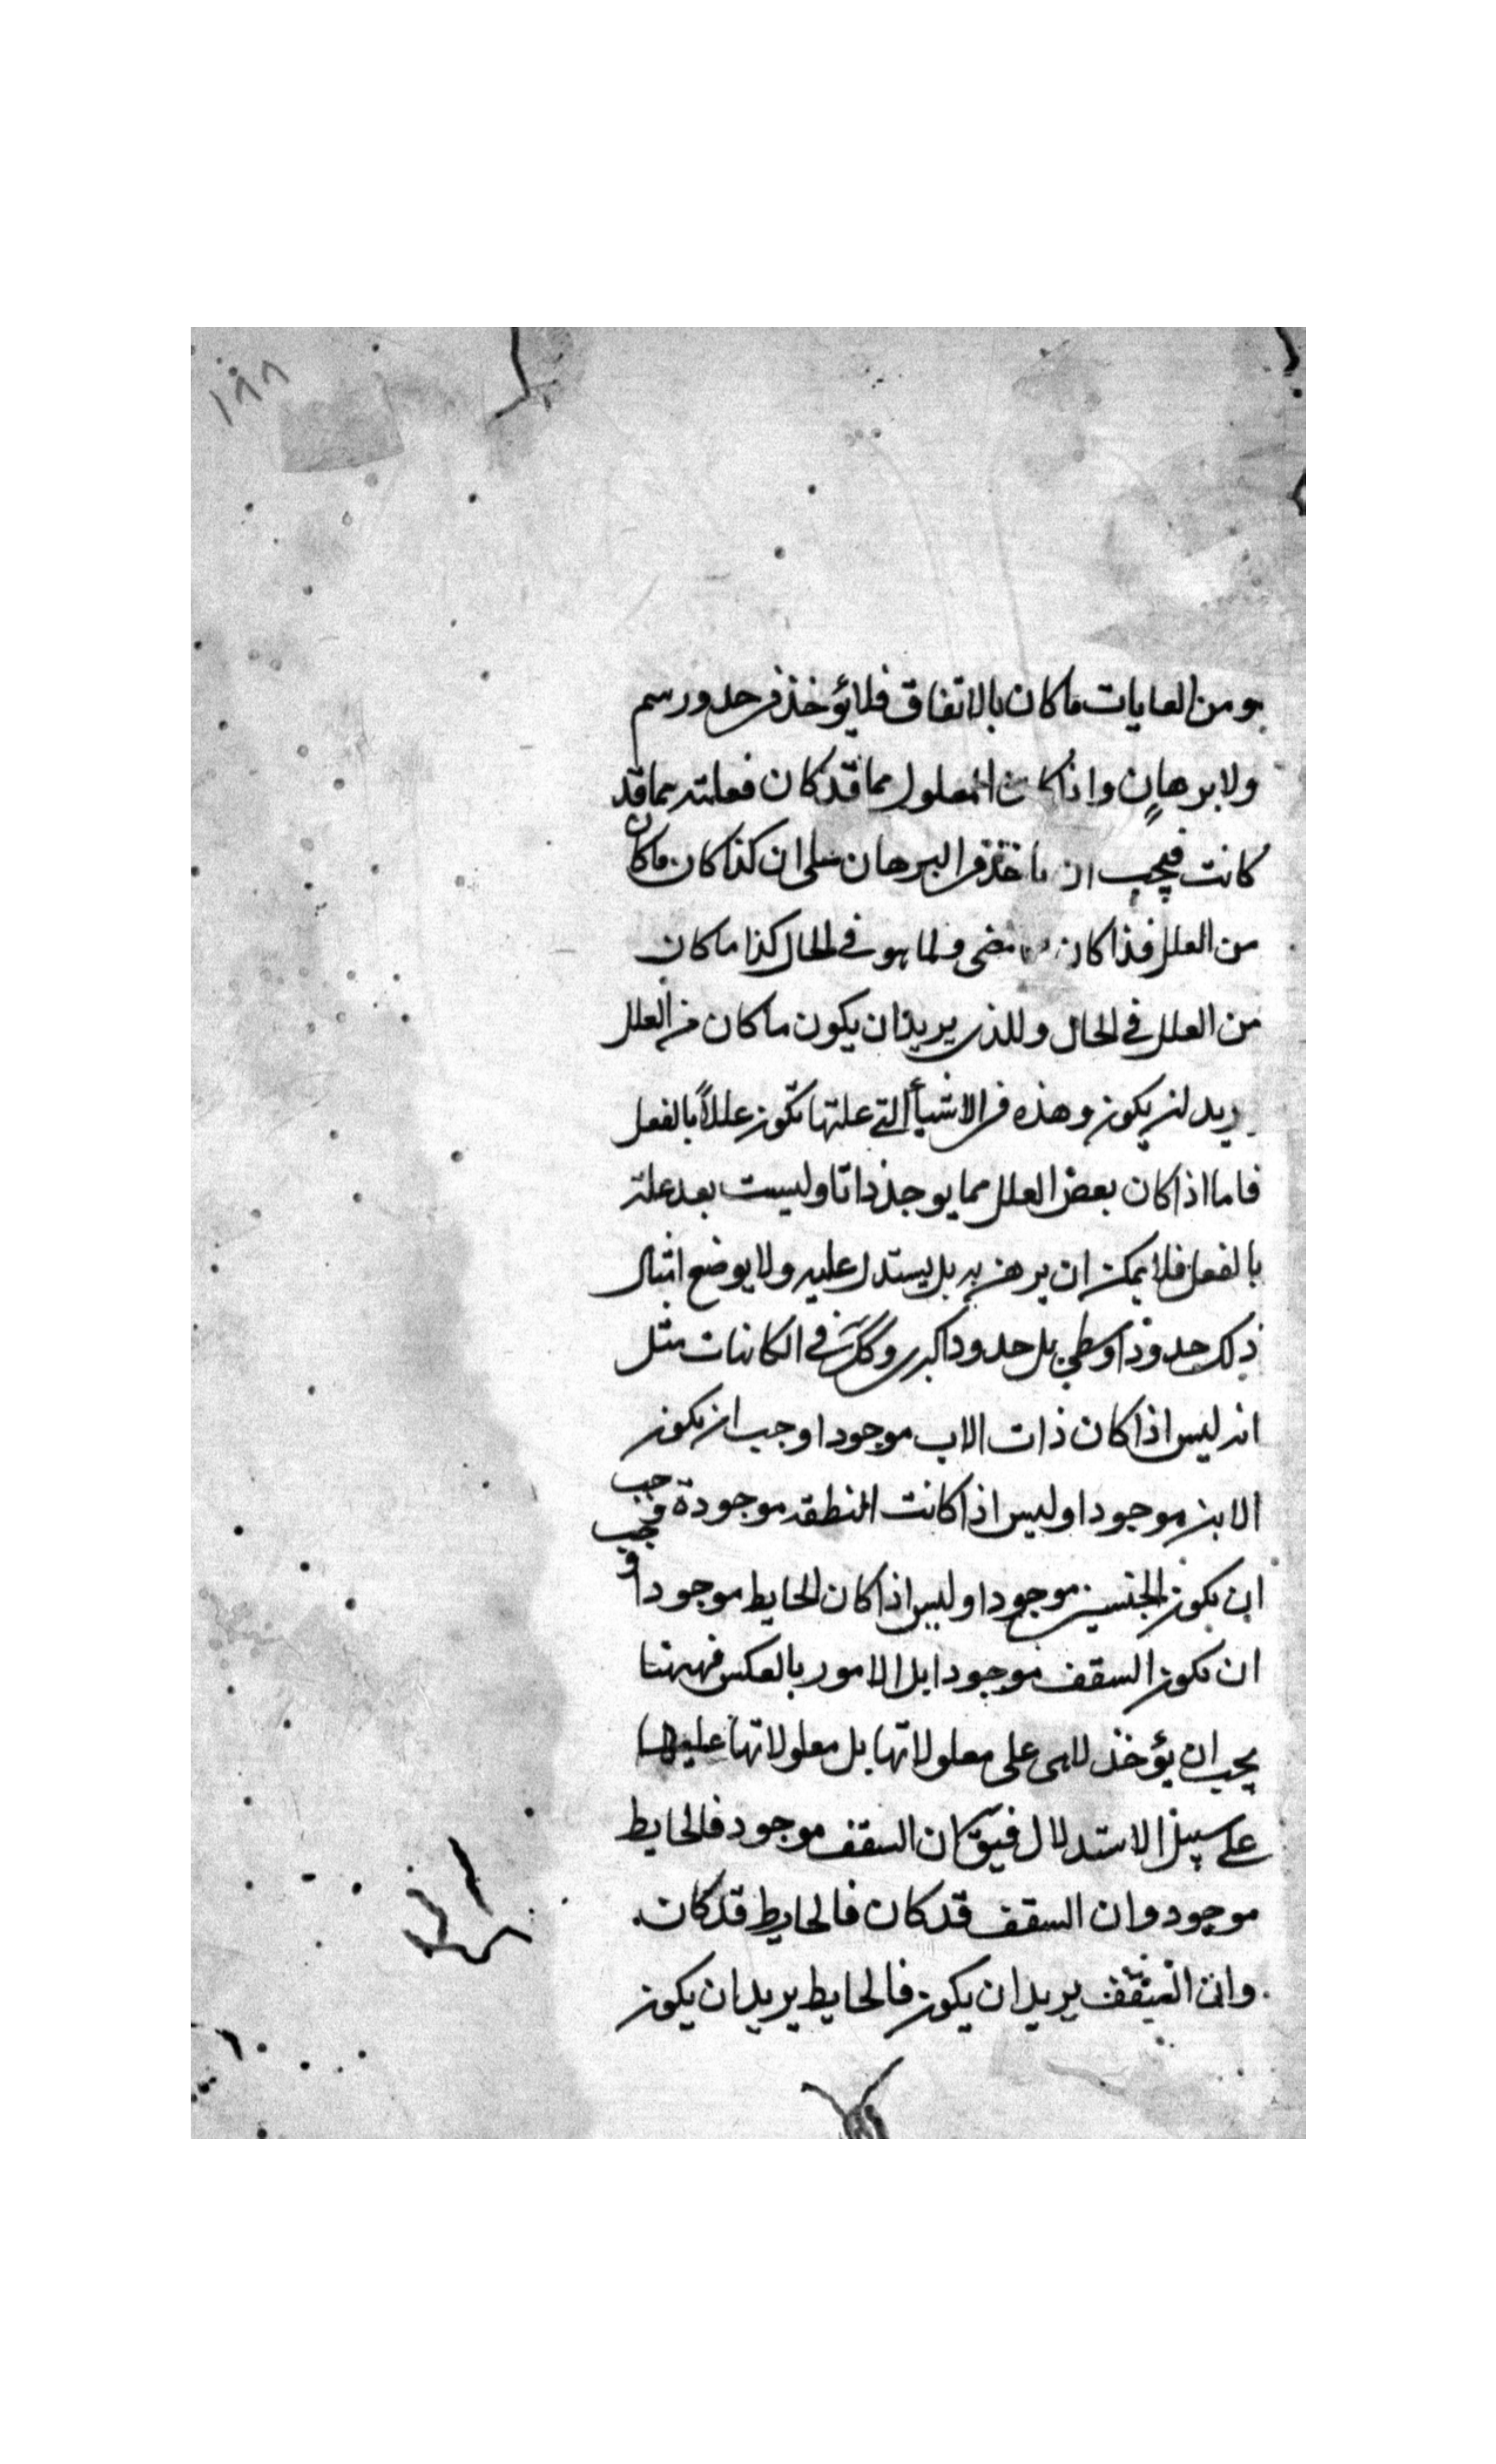 ١٨٨
هو من الغايات ما كان بالاتفاق فلا يؤخذ في حد ورسم
ولا برهان واذا كان المعلول مما قد كان فعلته مما قد
كانت فيجب ان ياخذ في البرهان على ان كذا كان ما كان
من العلل فذا كان مضى ولما هو في الحال كذا ما كان
من العلل في الحال وللذي يريد ان يكون ما كان من العلل
يريد ان يكون وهذه في الاشيأ التي علتها تكون عللاً بالفعل
فاما اذا كان بعض العلل مما يوجد ذاتا وليست بعد علته
بالفعل فلا يمكن ان يبرهن به بل يستدل عليه ولا يوضع امثال
ذلك حدودا وسطي بل حدودا كبرى وكك في الكائنات مثل
انه ليس اذا كان ذات الاب موجودا وجب ان يكون
الابن موجودا وليس اذا كانت النطفه موجودة وجب
ان يكون الجنين موجودا وليس اذا كان الحايط موجودا وجب
ان يكون السقف موجودا بل الامور بالعكس فههنا
يجب ان يؤخذ لا هى على معلولاتها بل معلولاتها عليها
على سبيل الاستدلال فيق كان السقف موجود فالحايط
موجود وان السقف قد كان فالحايط قد كان
وان السقف يريد ان يكون فالحايط يريد ان يكون